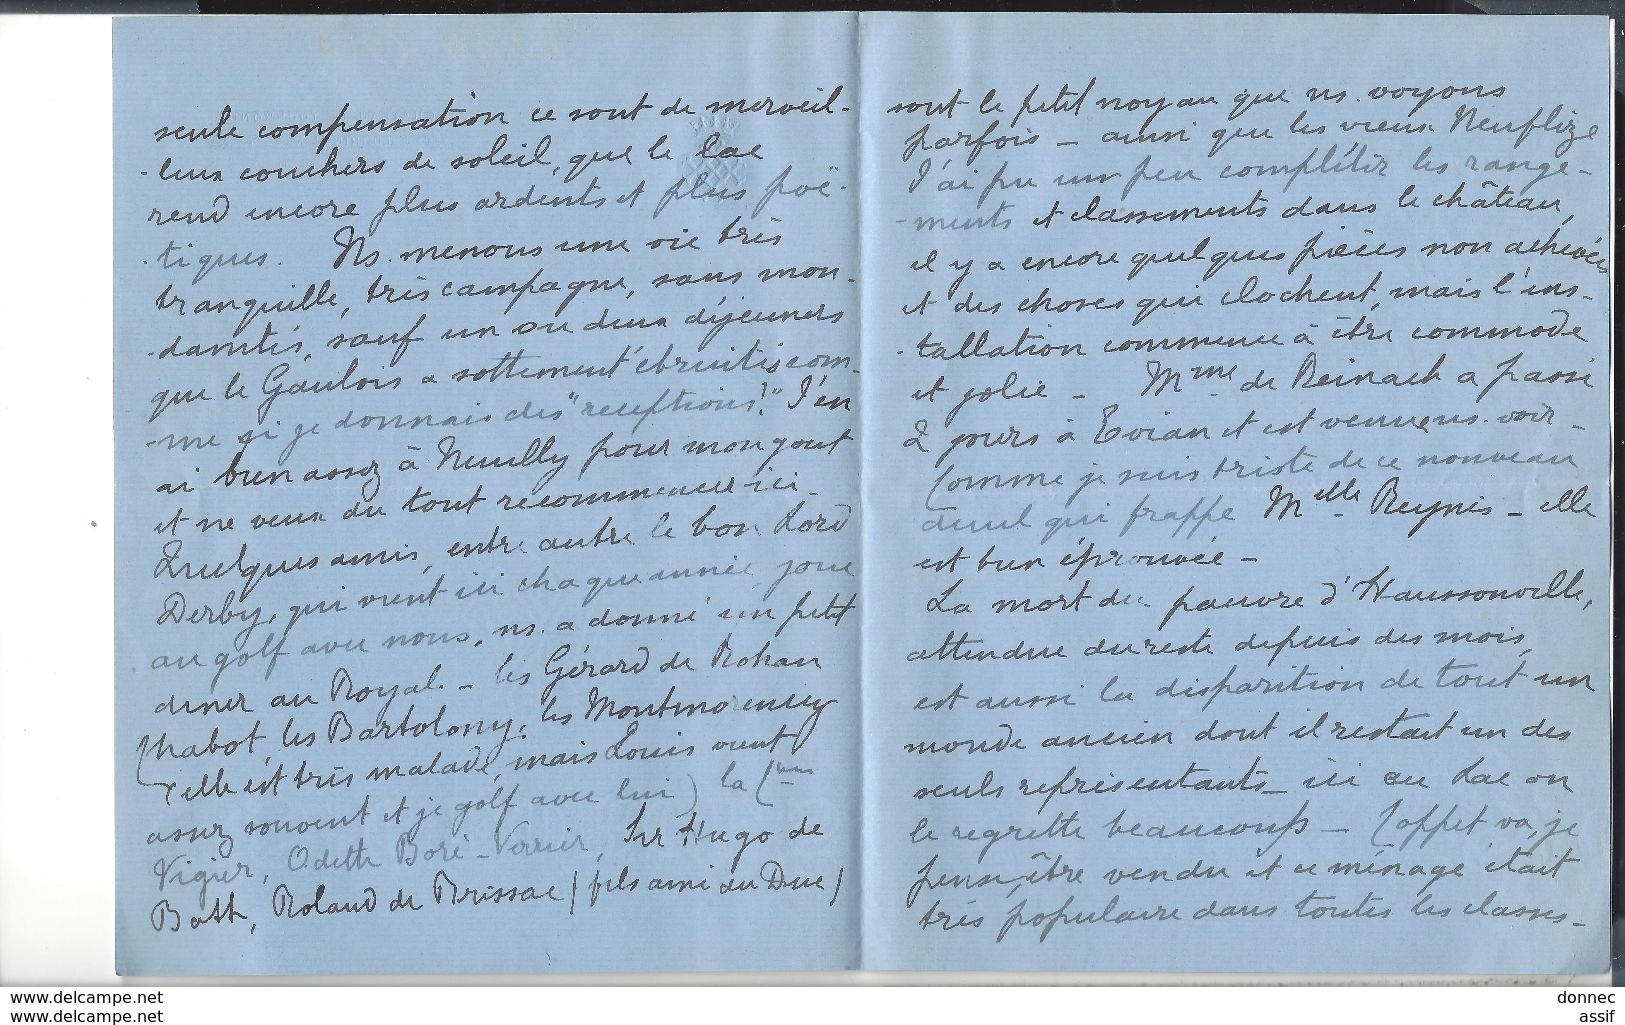 seule compensation ce sont de merveil-
-leux couchers de soleil, que le lac
rend encore plus ardents et plus poë-
-tiques. Ns. menons une vie très
tranquille, très campagne, sans mon-
-danités, sauf un ou deux déjeuners
que le Gaulois a sottement ébruités com-
-me si je donnais des "receptions!" J'en
ai bien assez à Neuilly pour mon gout
et ne veux du tout recommencer ici -
Quelques amis, entre autre le bon Lord
Derby, qui vient ici chaque année, joue
au golf avec nous, ns. a donné un petit
diner au Royal - les Gérard de Rohan
Chabot, les Bartolony, les Montmorency
(elle est très malade, mais Louis vient
assez souvent et je golf avec lui) la Ctesse
Vigier, Odette Boré-Verrier, Sir Hugo de
Bath, Roland de Brissac (fils ami du Duc)
sont le petit noyau que ns. voyons
parfois - ainsi que les vieux Neuflize
J'ai pu un peu complétér les range-
-ments et classements dans le château,
il y a encore quelques pièces non achevées
et des choses qui clochent, mais l'ins-
-tallation commence à être commode
et jolie - Mme de Reinach a passé
2 jours à Evian et est venue ns. voir -
Comme je suis triste de ce nouveau
deuil qui frappe Melle Reynis - elle
est bien éprouvée -
La mort du pauvre d'Haussonville,
attendue du reste depuis des mois,
est aussi la disparition de tout un
monde ancien dont il restait un des
seuls représentants - ici au Lac on
le regrette beaucoup - Coppet va, je
pense, être vendu et ce ménage était
très populaire dans toutes les classes -
www.delcampe.net
www.delcampe.net
donnec
assif